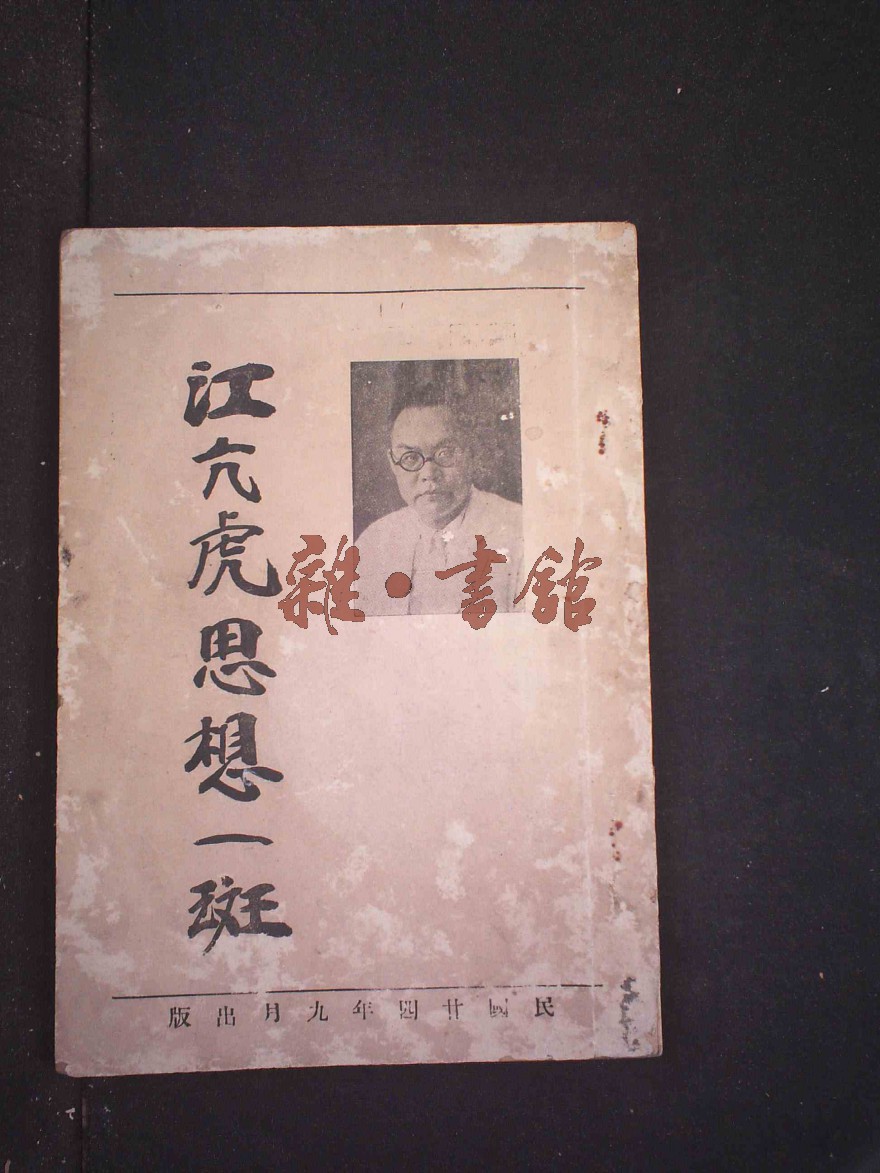 江亢虎思想一斑
雜·書館
民國廿四年九月出版